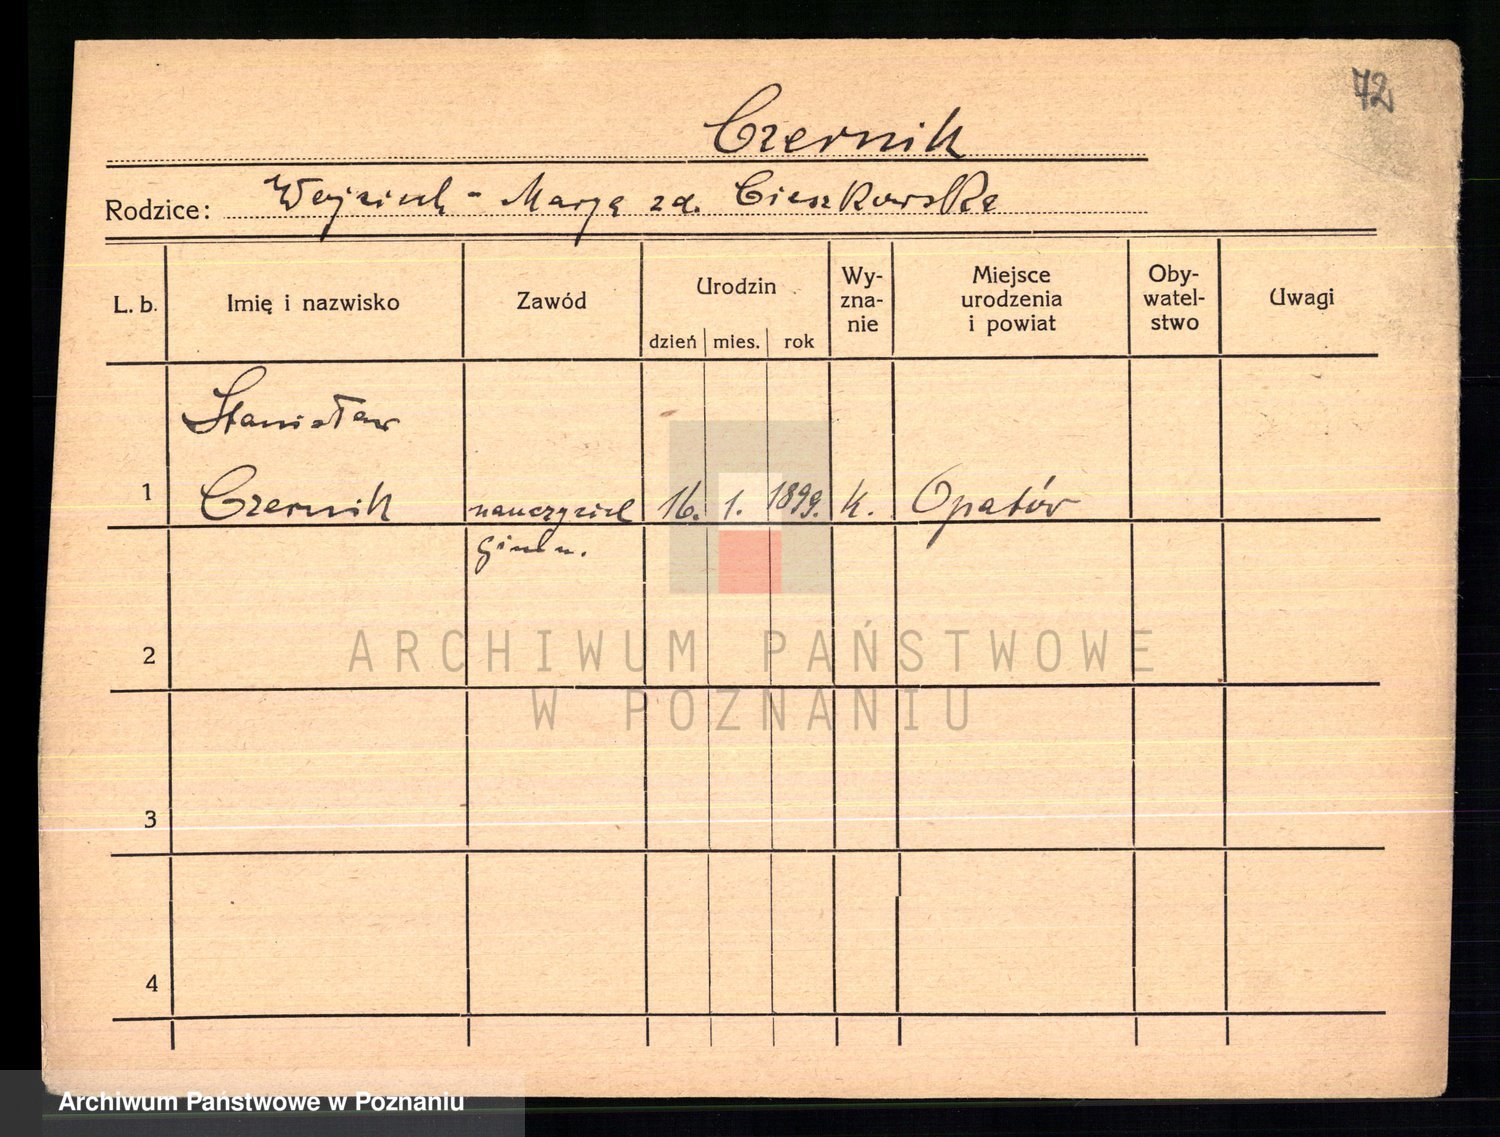 72
Czernik
Rodzice: Wojciech - Marya zd. Cieszkowska
L. b.
Imię i nazwisko
Zawód
Urodzin
dzień
mies.
rok
Wy-
zna-
nie
Miejsce
urodzenia
i powiat
Oby-
watel-
stwo
Uwagi
Stanisław
1 Czernik nauczyciel 16. 1. 1899. k. Opatów
gimn.
2
3
4
ARCHIWUM PAŃSTWOWE
W POZNANIU
Archiwum Państwowe w Poznaniu